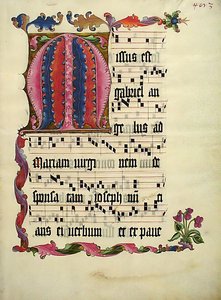 Missus est
gabriel an
gelus ad
Mariam virgi nem
sponsa tam ioseph
ans ei verbum et ex pave